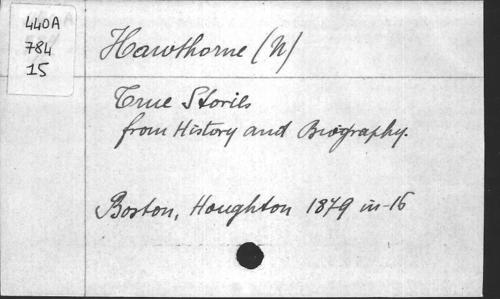 440A
784
15
Hawthorne (N)
True Stories
from History and Biography.
Boston, Houghton 1879 in-16